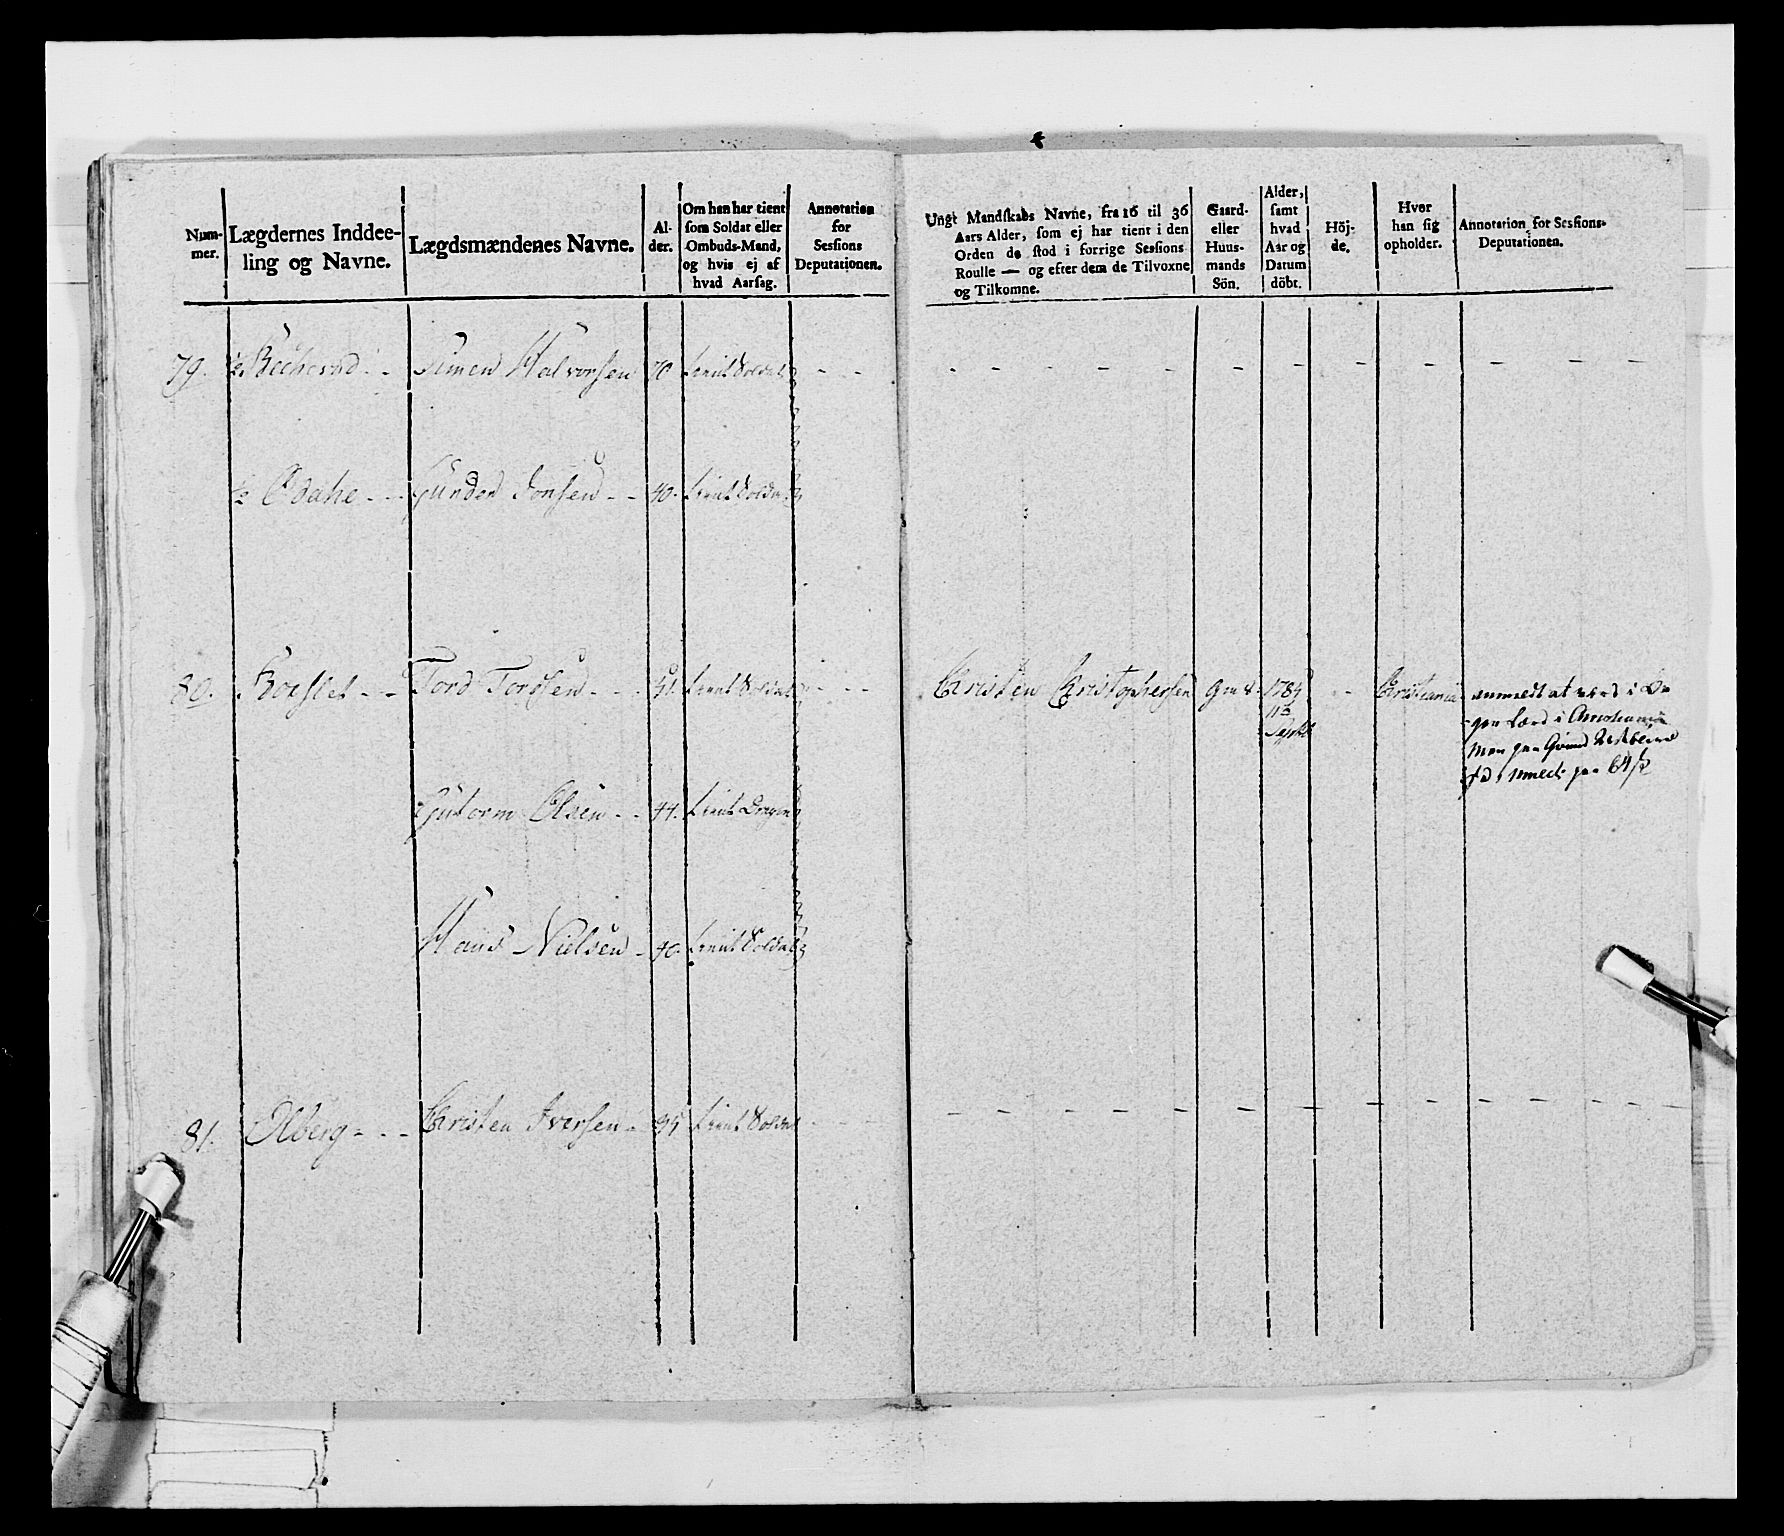 Num-
mer.
Lægdernes Inddee-
ling og Navne.
Lægdsmændenes Navne.
Al-
der.
Om han har tient
som Soldat eller
Ombuds-Mand,
og hvis ej af
hvad Aarsag.
Annotation
for
Sessions
Deputationen.
Ungt Mandskabs Navne, fra 16 til 36
Aars Alder, som ej har tient i den
Orden de stod i forrige Sessions
Roulle — og efter dem de Tilvoxne
og Tilkomne.
Gaard-
eller
Huus-
mands
Sön.
Alder,
samt
hvad
Aar og
Datum
döbt.
Höj-
de.
Hvor
han sig
opholder.
Annotation for Sessions-
Deputationen.
79. 1/2 Simen Halvorsen 70 tient Soldat - - -
1/2 Gunder Jonsen - - 40. tient Soldat
80. Tord Tordsen - - - 51. tient Soldat - - - Christen Christophersen 1784 - - Christiania
11te
Septbr
Gutorm Olsen - - 44. tient Dragon
Hans Nielsen - 40. tient Soldat
81. Olberg - - - Christen Iversen - 35 tient Soldat